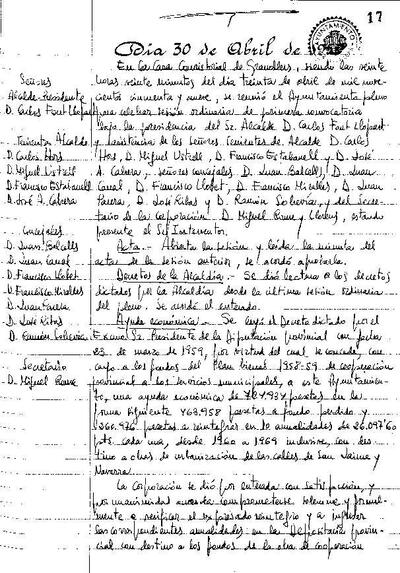 17
Dia 30 de Abril de 1959
AYUNTAMIENTO
Señores
Alcalde-Presidente
D. Carlos Font Llopart
Tenientes Alcalde
D. Carlos Hors
D. Miguel Ustrell
D. Francisco Estabanell
D. José A. Cabrera
Concejales
D. Juan Balcells
D. Juan Canal
D. Francisco Llobet
D. Francisco Miralles
D. Juan Parera
D. José Ribas
D. Ramón
Secretario
D. Miguel
En las Casas Consistorial de Granollers, siendo las veinte
horas veinte minutos del día treinta de abril de mil nove-
cientos cincuenta y nueve, se reunió el Ayuntamiento pleno
para celebrar sesión ordinaria de primera convocatoria
bajo la presidencia del Sr. Alcalde D. Carlos Font Llopart
y asistencia de los señores Tenientes de Alcalde D. Carlos
Hors, D. Miguel Ustrell, D. Francisco Estabanell y D. José
A. Cabrera, señores concejales D. Juan Balcells, D. Juan
Canal, D. Francisco Llobet, D. Francisco Miralles, D. Juan
Parera, D. José Ribas y D. Ramón y del Secre-
tario de la Corporación D. Miguel y estando
presente el Sr. Interventor.
Acta.- Abierta la sesión y leída la minuta del
acta de la sesión anterior, se acordó aprobarla.
Decretos de la Alcaldía.- Se dió lectura a los decretos
dictados por la Alcaldía desde la última sesión ordinaria
del pleno. Se acordó el enterado.
Ayuda económica.- Se leyó el Decreto dictado por el
Excmo. Sr. Presidente de la Diputación provincial con fecha
23 de marzo de 1959, por virtud del cual se concede, con
cargo a los fondos del Plan bienal 1958-59 de cooperación
provincial a los servicios municipales, a este Ayuntamien-
to, una ayuda económica de pesetas en la
forma siguiente pesetas a fondo perdido y
pesetas a reintegrar en 10 anualidades de 26.097'60
pts. cada una, desde 1960 a 1969 inclusive, con des-
tino a obras de urbanización de las calles de San Jaime y
Navarra.
La Corporación se dió por enterada con satisfacción, y
por unanimidad acuerda comprometerse solemne y formal-
mente a verificar el expresado reintegro y a ingresar
las correspondientes anualidades en la Depositaría provin-
cial con destino a los fondos de la obra de cooperación